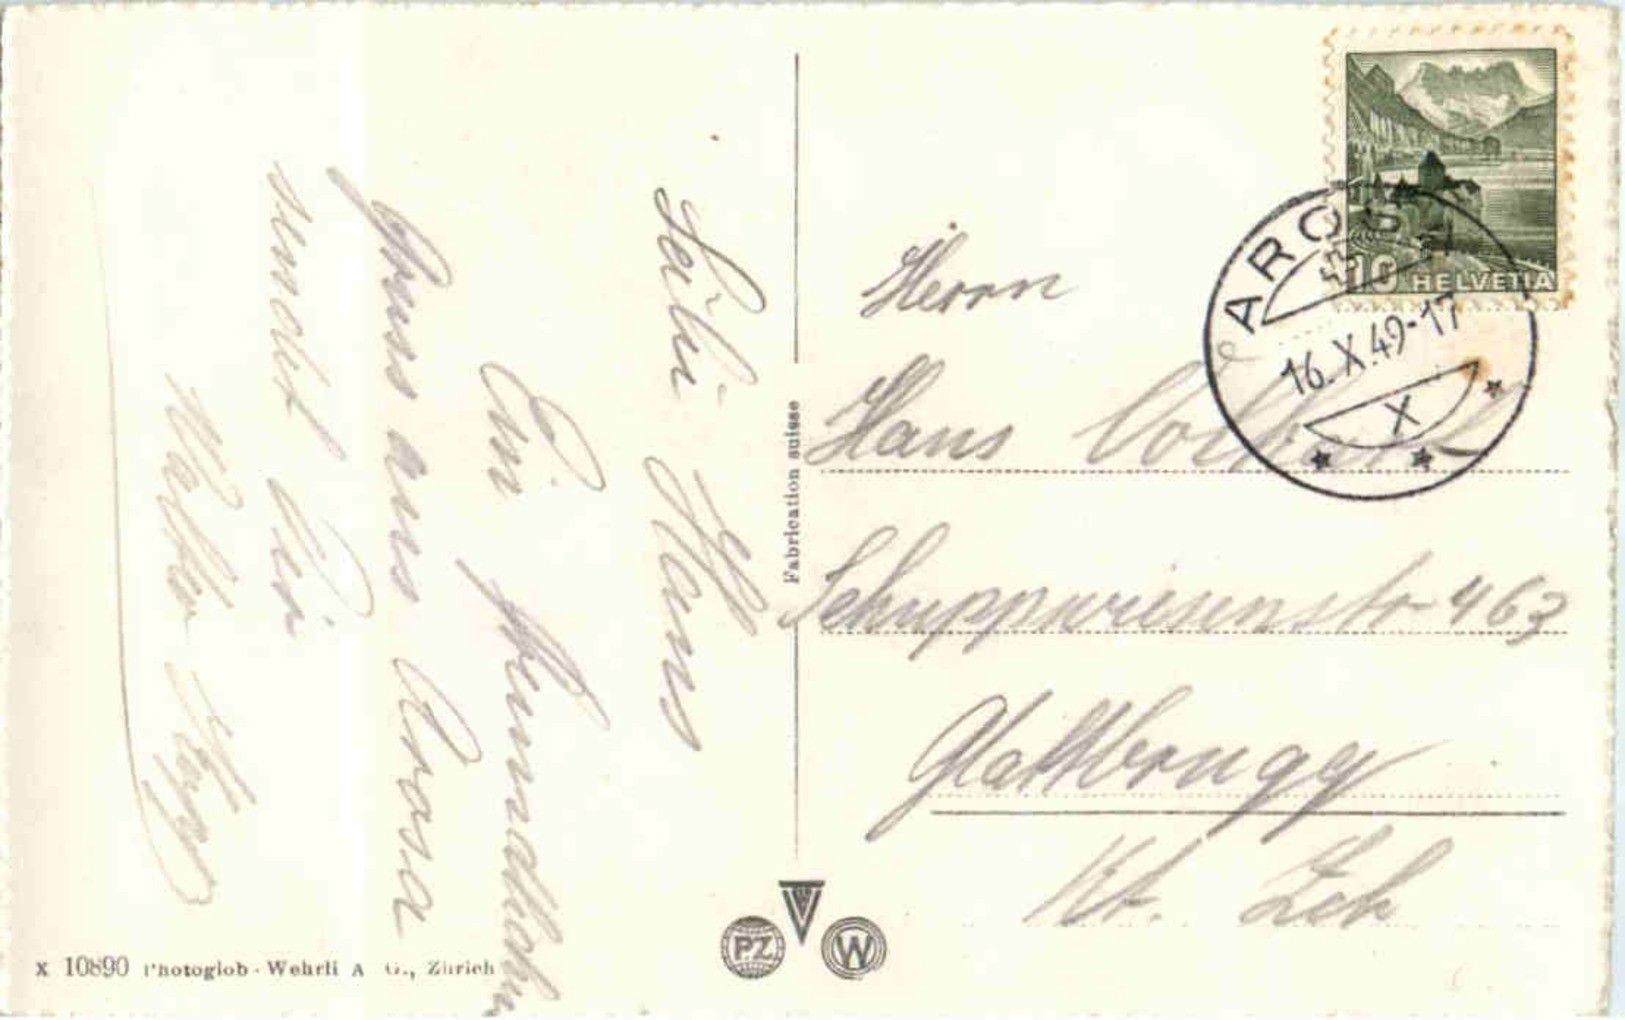 Salü Hans
Ein freundlichen
Gruss aus Arosa
sendet Dir
Walter
Fabrication suisse
Herrn
Hans
Schuppwiesenstr 463
Glattbrugg
Kt. Zch
HELVETIA
10
AROSA
16.X.49-17
X
PZ
W
X 10890 Photoglob-Wehrli A.G., Zürich